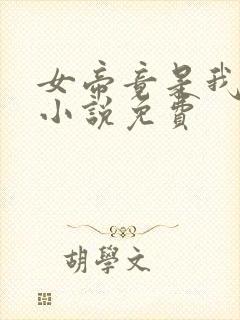 女帝竟是我
小說免費
胡學文